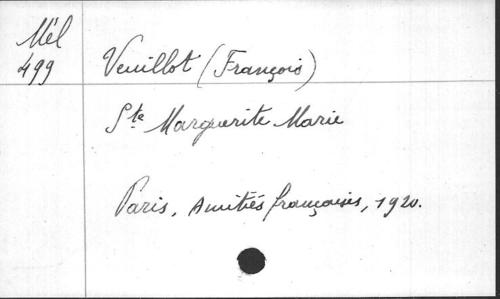 Mél
499
Veuillot (François)
Ste Marguerite Marie
Paris, Amitiés françaises, 1920.